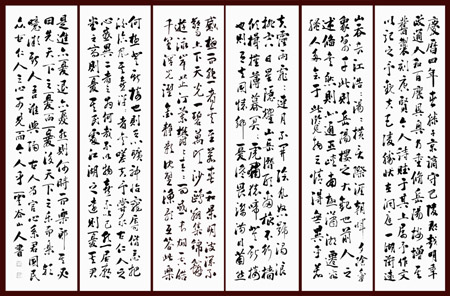 慶曆四年春滕子京謫守巴陵郡越明年
政通人和百廢具興乃重修岳陽樓增其
舊制刻唐賢今人詩賦於其上屬予作文
以記之予觀夫巴陵勝狀在洞庭一湖銜遠
山吞長江浩浩湯湯橫無際涯朝暉夕陰氣
象萬千此則岳陽樓之大觀也前人之
述備矣然則北通巫峽南極瀟湘遷客
騷人多會於此覽物之情得無異乎若
夫霪雨霏霏連月不開陰風怒號濁浪
排空日星隱曜山岳潛形商旅不行檣
傾楫摧薄暮冥冥虎嘯猿啼登斯樓
也則有去國懷鄉憂讒畏譏滿目蕭然
感極而悲者矣至若春和景明波瀾不
驚上下天光一碧萬頃沙鷗翔集錦鱗
游泳岸芷汀蘭郁郁青青而或長煙一空皓月
千里浮光躍金靜影沉璧漁歌互答此樂
何極登斯樓也則有心曠神怡寵辱偕忘把
酒臨風其喜洋洋者矣嗟夫予嘗求古仁人之
心或異二者之為何哉不以物喜不以己悲居廟
堂之高則憂其民處江湖之遠則憂其君
是進亦憂退亦憂然則何時而樂耶其必
曰先天下之憂而憂後天下之樂而樂歟
噫微斯人吾誰與歸